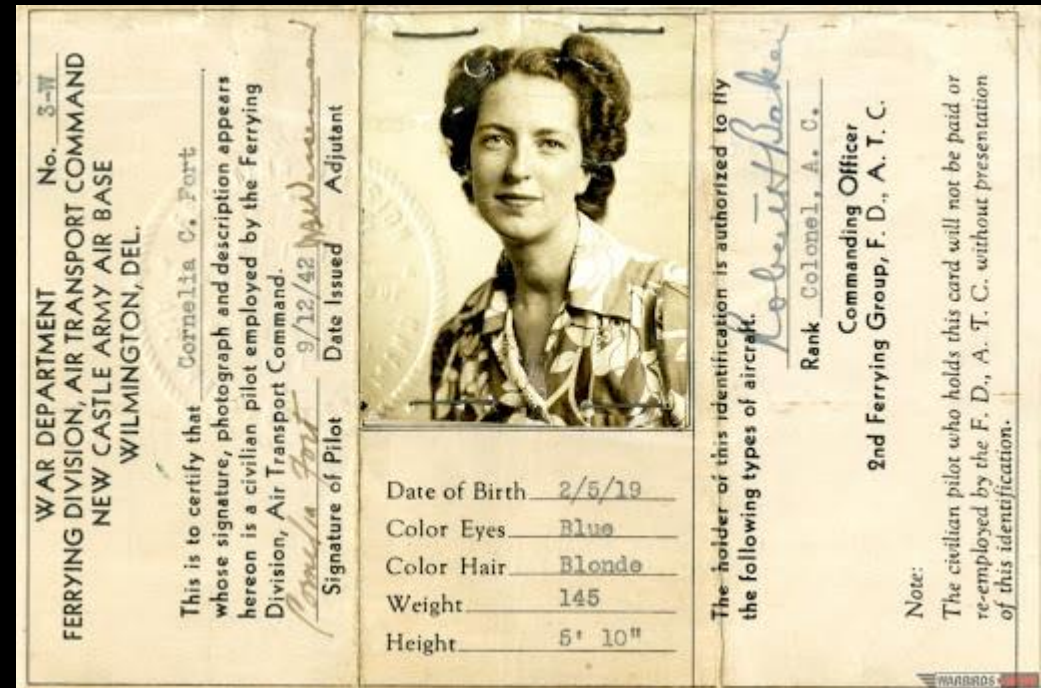 WAR DEPARTMENT No. 3-W
FERRYING DIVISION, AIR TRANSPORT COMMAND
NEW CASTLE ARMY AIR BASE
WILMINGTON, DEL.
This is to certify that Cornelia C. Fort
whose signature, photograph and description appears
hereon is a civilian pilot employed by the Ferrying
Division, Air Transport Command.
Cornelia Fort 9/12/42
Signature of Pilot Date Issued Adjutant
Date of Birth 2/5/19
Color Eyes Blue
Color Hair Blonde
Weight 145
Height 5' 10"
The holder of this identification is authorized to fly
the following types of aircraft.
Robert H Baker
Rank Colonel, A. C.
Commanding Officer
2nd Ferrying Group, F. D., A. T. C.
Note:
The civilian pilot who holds this card will not be paid or
re-employed by the F. D., A. T. C. without presentation
of this identification.
WARBIRDS